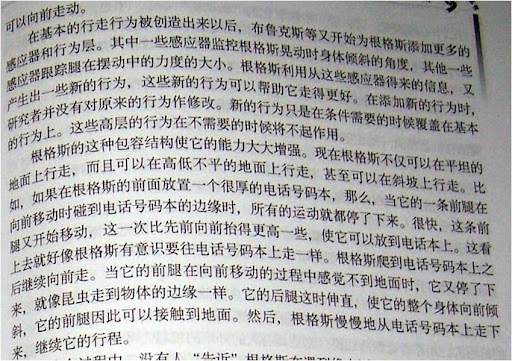 可以向前走动。
在基本的行走行为被创造出来以后，布鲁克斯等又开始为根格斯添加更多的
感应器和行为层。其中一些感应器监控根格斯晃动时身体倾斜的角度，其他一些
感应器跟踪腿在摆动中的力度的大小。根格斯利用从这些感应器得来的信息，又
产生出一些新的行为，这些新的行为可以帮助它走得更好。在添加新的行为时，
研究者并没有对原来的行为作修改。新的行为只是在条件需要的时候覆盖在基本
的行为上。这些高层的行为在不需要的时候将不起作用。
根格斯的这种包容结构使它的能力大大增强。现在根格斯不仅可以在平坦的
地面上行走，而且可以在高低不平的地面上行走，甚至可以在斜坡上行走。比
如，如果在根格斯的前面放置一个很厚的电话号码本，那么，当它的一条前腿在
向前移动时碰到电话号码本的边缘时，所有的运动就都停了下来。很快，这条前
腿又开始移动，这一次比先前向前抬得更高一些，使它可以放到电话本上。这看
上去就好像根格斯有意识要往电话号码本上走一样。根格斯爬到电话号码本上之
后继续向前走。当它的前腿在向前移动的过程中感觉不到地面时，它又停了下
来，就像昆虫走到物体的边缘一样。它的后腿这时伸直，使它的整个身体向前倾
斜，它的前腿因此可以接触到地面。然后，根格斯慢慢地从电话号码本上走下
来，继续它的行程。
过程中，没有人“告诉”根格斯